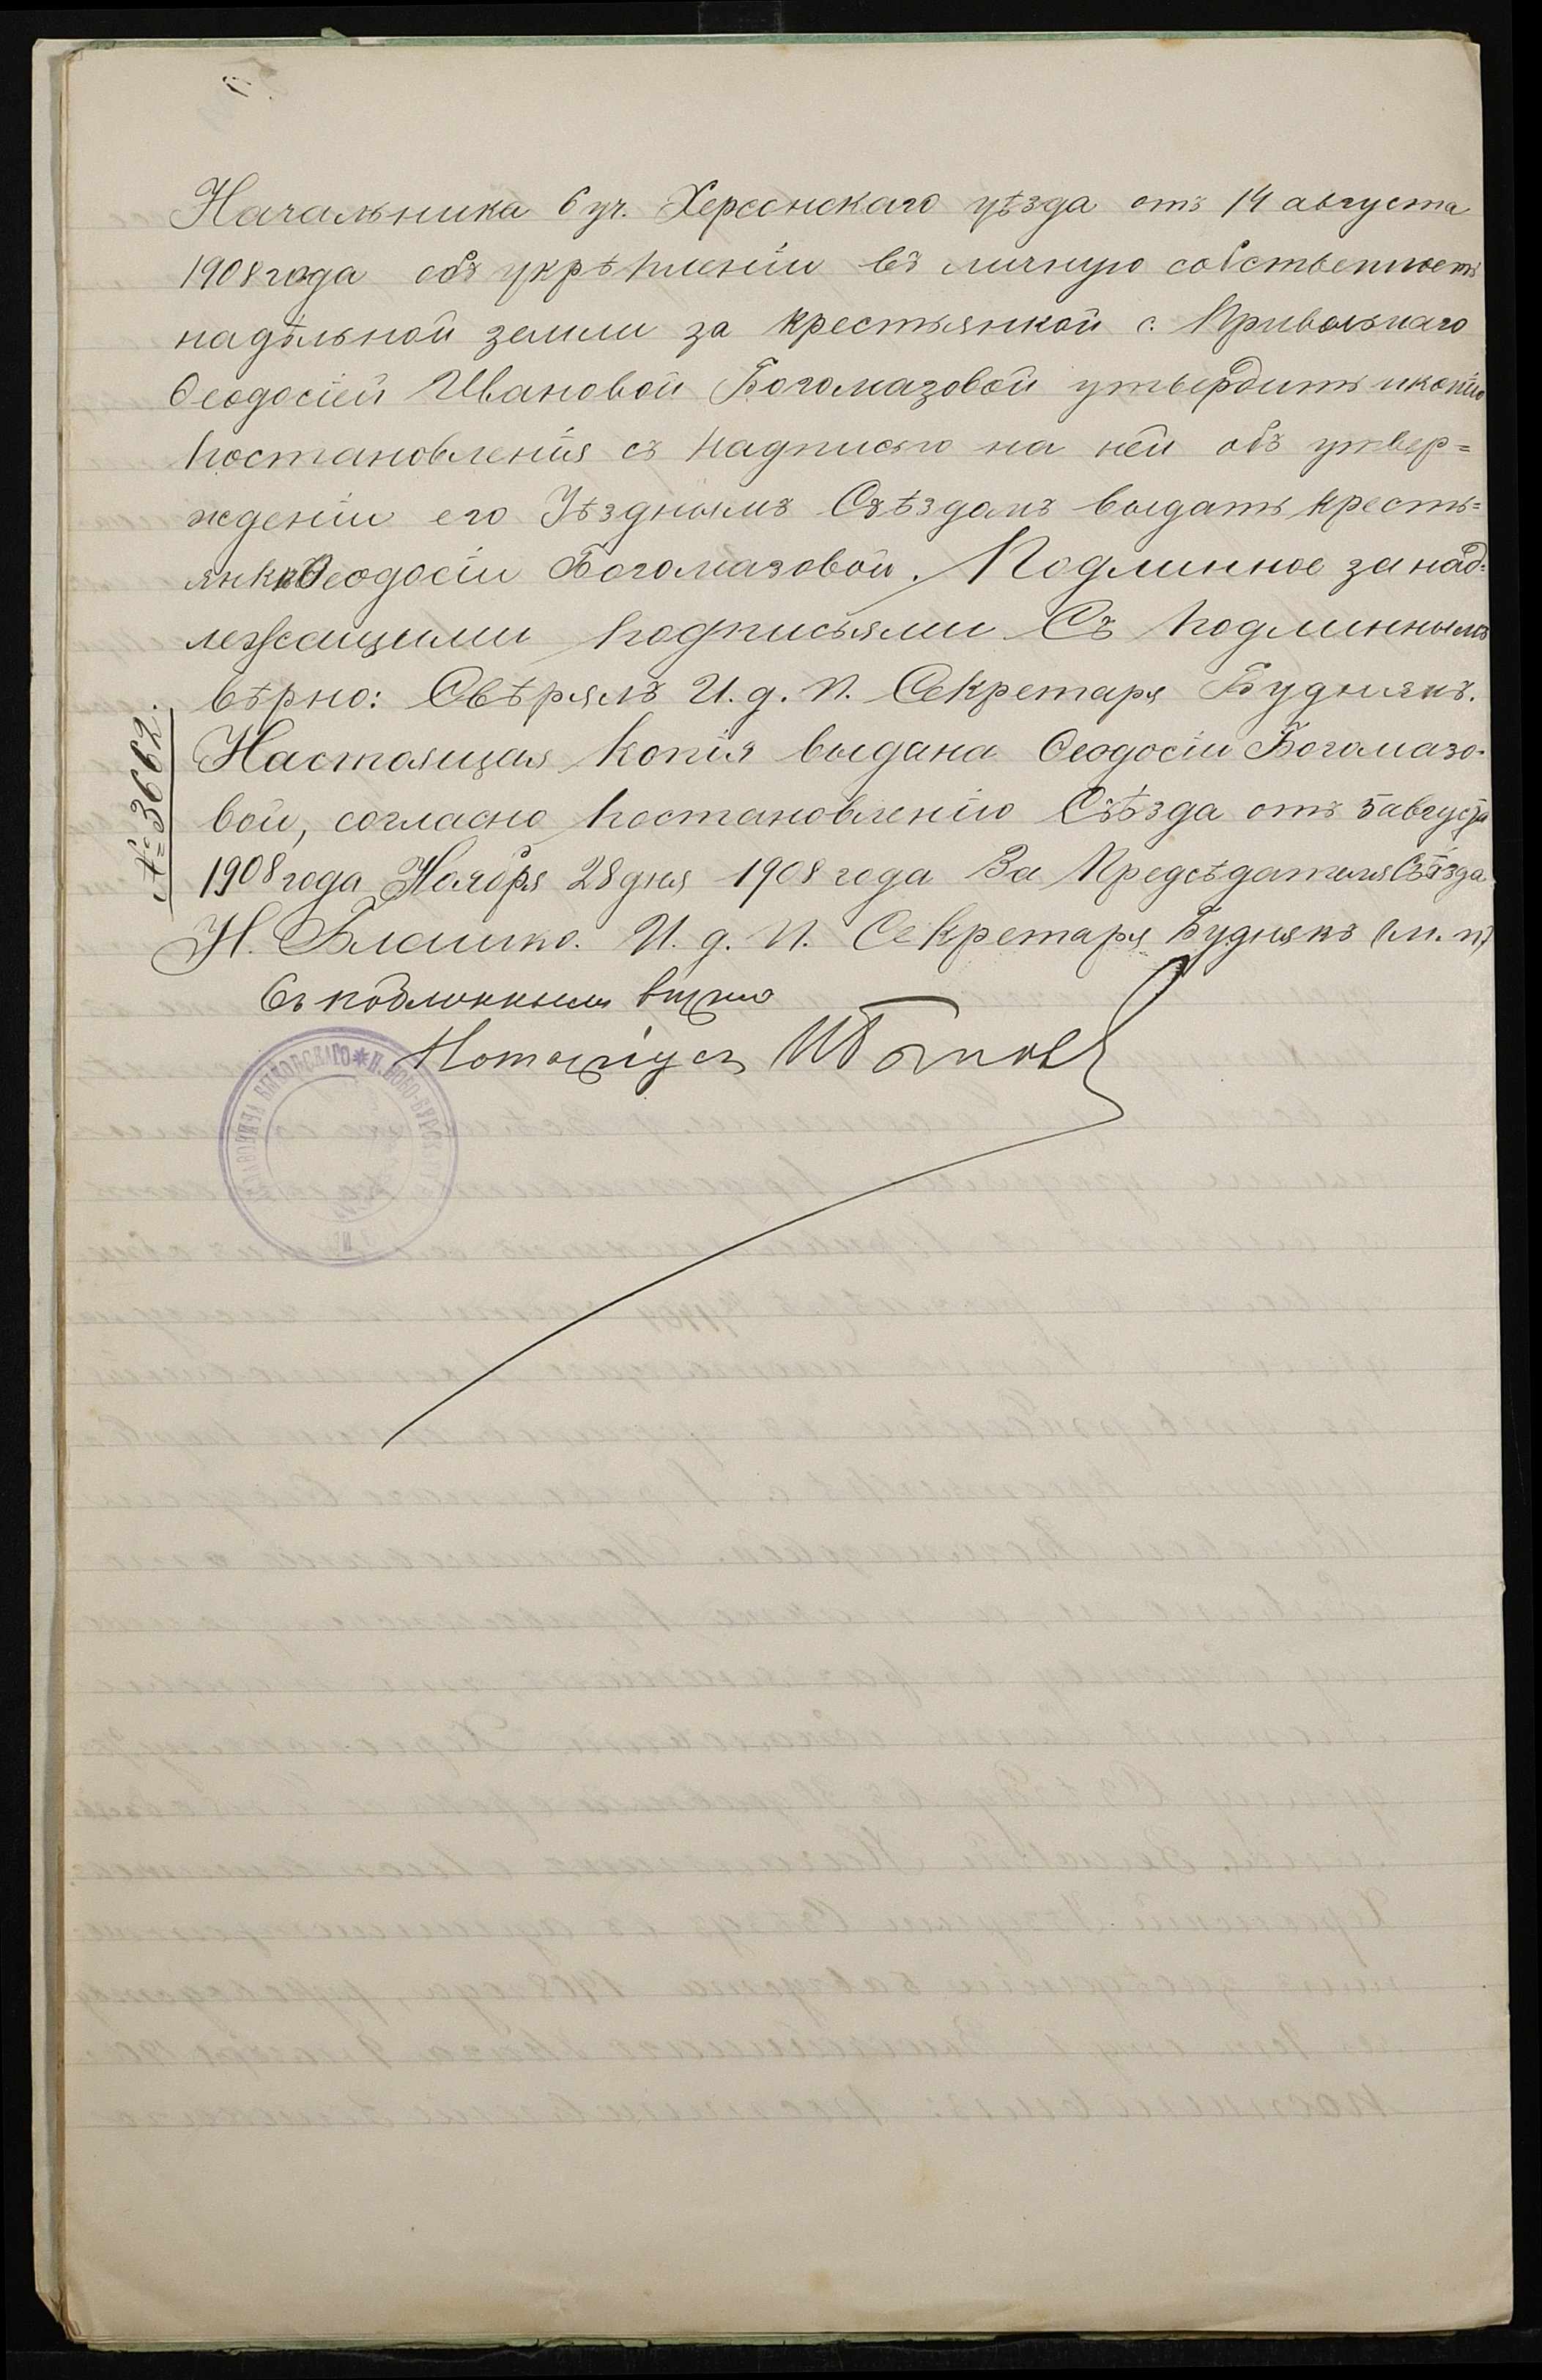 Начальника 6 уч. Херсонскаго уѣзда отъ 14 августа
1908 года объ укрѣпленіи въ личную собственность
надѣльной земли за крестьянкой с. Привольнаго
Ѳеодосіей Ивановой Богомазовой утвердить и копію
постановленія съ надписью на ней объ утвер=
жденіи его Уѣзднымъ Съѣздомъ выдать кресть=
янкѣ Ѳеодосіи Богомазовой. Подлинное за над=
лежащими подписьями Съ подлиннымъ
вѣрно: Свѣрялъ И. д. п. Секретаря Буднякъ.
№ 3662.
Настоящая копія выдана Ѳеодосіи Богомазо-
вой, согласно постановленію Съѣзда отъ 5 августа
1908 года Ноября 28 дня 1908 года За Предсѣдателя Съѣзда
Н. Блашко. И. д. п. Секретаря Буднякъ (м. п)
Съ подлиннымъ вѣрно
Нотаріусъ